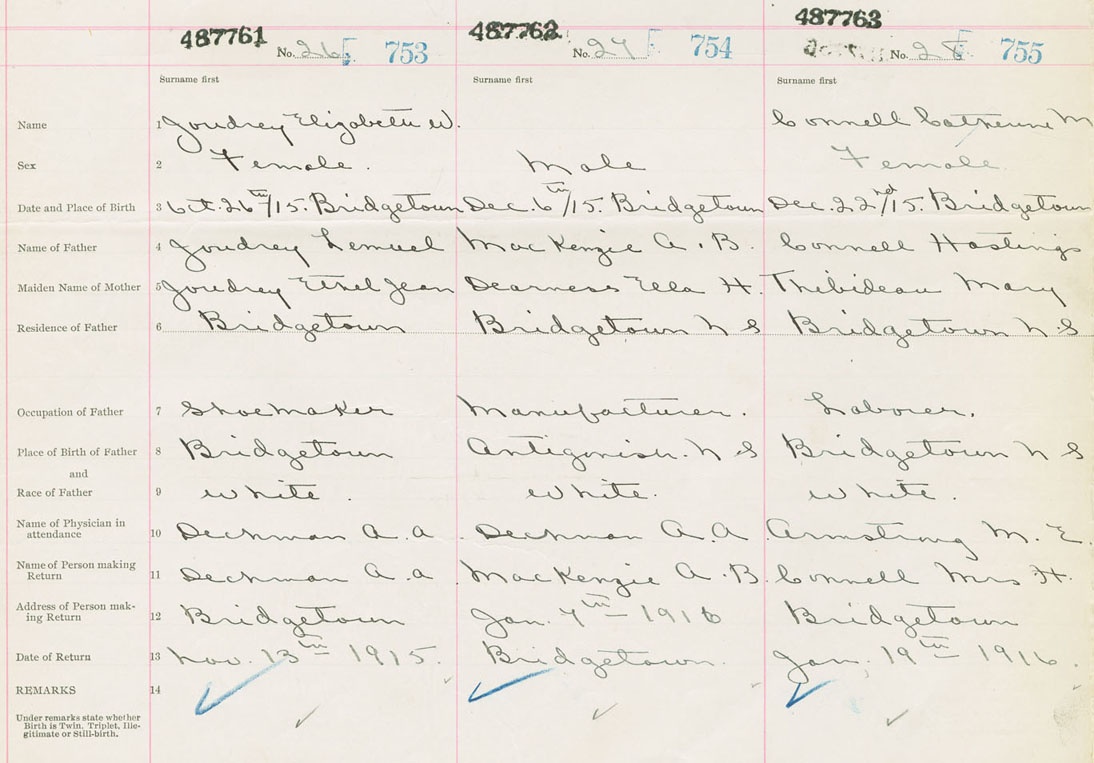 487761 487762 487763
No. 26 753 No. 27 754 No. 28 755
Surname first Surname first Surname first
Name 1 Joudrey Elizabeth W. Connell Catherine M
Sex 2 Female. Male Female.
Date and Place of Birth 3 Oct. 26th/15. Bridgetown Dec. 6th/15. Bridgetown Dec. 22nd/15. Bridgetown
Name of Father 4 Joudrey Lemuel MacKenzie A. B. Connell Hastings
Maiden Name of Mother 5 Joudrey Ethel Jean Dearness Ella H. Thibideau Mary
Residence of Father 6 Bridgetown Bridgetown N S Bridgetown N.S
Occupation of Father 7 Shoemaker Manufacturer. Laborer.
Place of Birth of Father 8 Bridgetown Antigonish. N S Bridgetown N S
and
Race of Father 9 White. White. White.
Name of Physician in
attendance 10 Dechman A. a Dechman A. A Armstrong M. E.
Name of Person making
Return 11 Dechman A. a MacKenzie A. B. Connell Mrs H.
Address of Person mak-
ing Return 12 Bridgetown Jan. 7th 1916 Bridgetown
Date of Return 13 Nov. 13th 1915. Bridgetown. Jan. 19th 1916.
REMARKS 14
Under remarks state whether
Birth is Twin, Triplet, Ille-
gitimate or Still-birth.